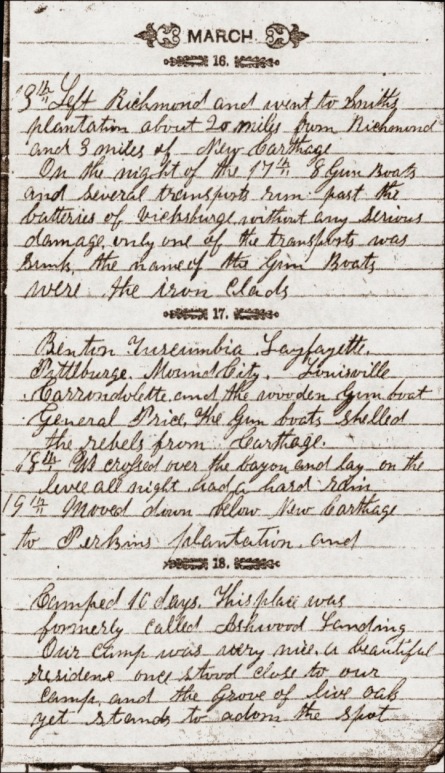 MARCH
16.
13th Left Richmond and went to Smiths
plantation about 20 miles from Richmond
and 3 miles of New Carthage
On the night of the 17th 8 Gun Boats
and several transports run past the
batteries of Vicksburge, without any serious
damage, only one of the transports was
sunk, the name of the Gun Boats
were the iron Clads
17.
Benton Tuscumbia Layfayette,
Pittlburge, Mound City, Louisville
Carrondolette, and the wooden Gun boat
General Price, the Gun boats shelled
the rebels from Carthage.
18th We crossed over the bayou and lay on the
levee all night had a hard rain
19th Moved down below New Carthage
to Perkins plantation and
18.
Camped 10 days. This place was
formerly called Ashwood Landing
Our camp was very nice, a beautiful
residence once stood close to our
camp, and the Grove of live oak
yet stands to adorn the spot